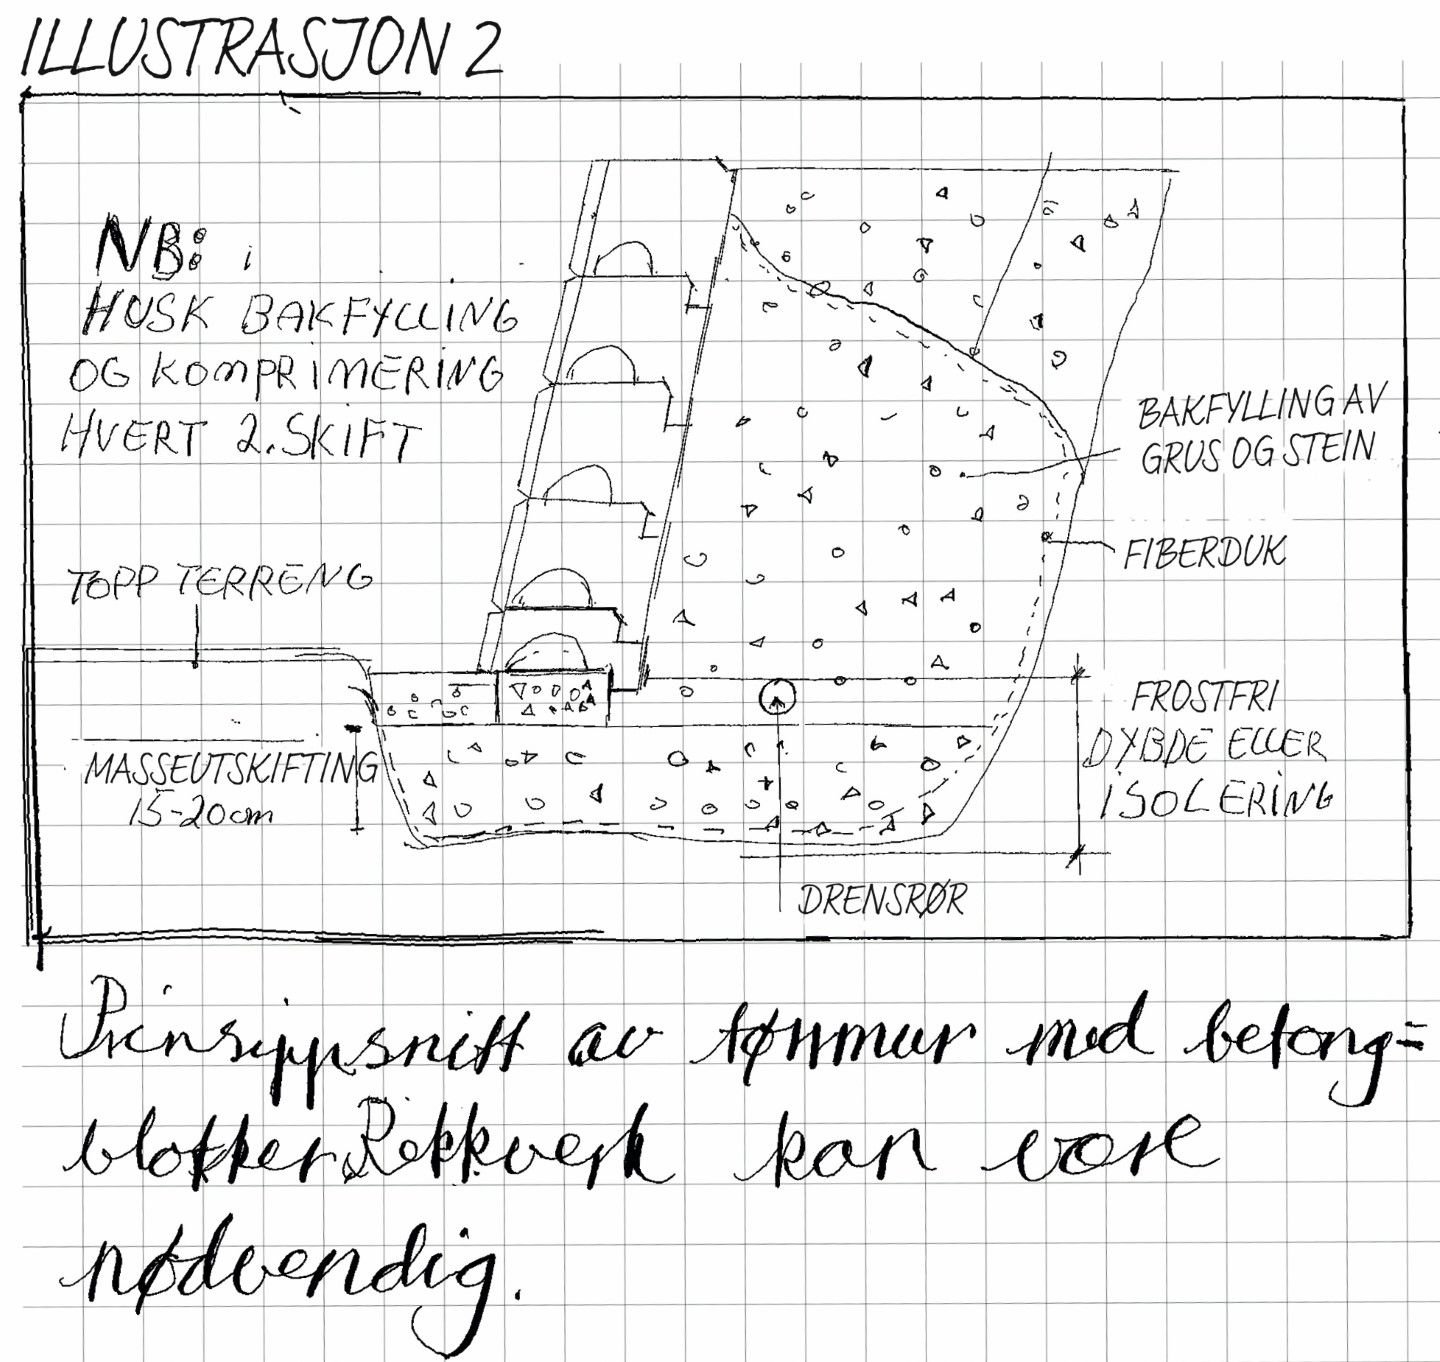 ILLUSTRASJON 2
NB:
HUSK BAKFYLLING
OG KOMPRIMERING
HVERT 2.SKIFT
BAKFYLLING AV
GRUS OG STEIN
FIBERDUK
TOPP TERRENG
FROSTFRI
DYBDE ELLER
ISOLERING
MASSEUTSKIFTING
15-20cm
DRENSRØR
Prinsippsnitt av tørrmur med betong=
blokker. Rekkverk kan være
nødvendig.